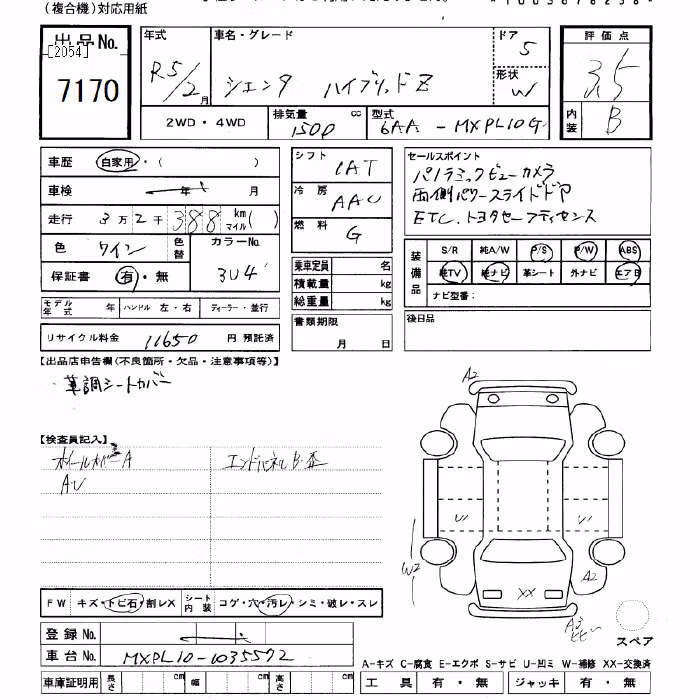 (複合機)対応用紙
出品No.
[2054]
7170
年式 R5/2月
車名・グレード シエンタ ハイブリッドZ
ドア 5
形状 W
評価点 3.5
内装 B
2WD・4WD
排気量 1500 cc
型式 6AA-MXPL10G
車歴 自家用・( )
車検 年 月
走行 3万2千388km マイル( )
色 ワイン 色替
カラーNo. 3U4
保証書 有・無
モデル年式 年 ハンドル 左・右 ディーラー・並行
リサイクル料金 11650 円 預託済
シフト IAT
冷房 AAC
燃料 G
乗車定員 名
積載量 kg
総重量 kg
書類期限
月 日
セールスポイント
パノラミックビューカメラ
両側パワースライドドア
ETC.トヨタセーフティセンス
装備品
S/R 純A/W P/S P/W ABS
純TV 純ナビ 革シート 外ナビ エアB
ナビ型番:
後日品
【出品店申告欄(不良箇所・欠品・注意事項等)】
・革調シートカバー
【検査員記入】
ホイールカバーA
AU
エンドパネルB・歪
A2
U1
U1
W2
A2
XX
A3
FW キズ・トビ石・割レX シート内装 コゲ・穴・汚レ・シミ・破レ・スレ
登録No.
車台No. MXPL10-1035572
車庫証明用 長さ cm 幅 cm 高さ cm
スペア
A-キズ C-腐食 E-エクボ S-サビ U-凹ミ W-補修 XX-交換済
工具 有・無 ジャッキ 有・無